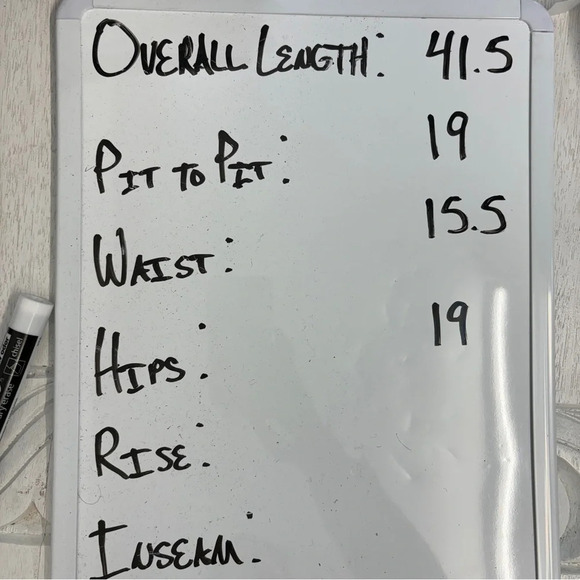 OVERALL LENGTH: 41.5
PIT TO PIT: 19
WAIST: 15.5
HIPS: 19
RISE:
INSEAM:
chisel